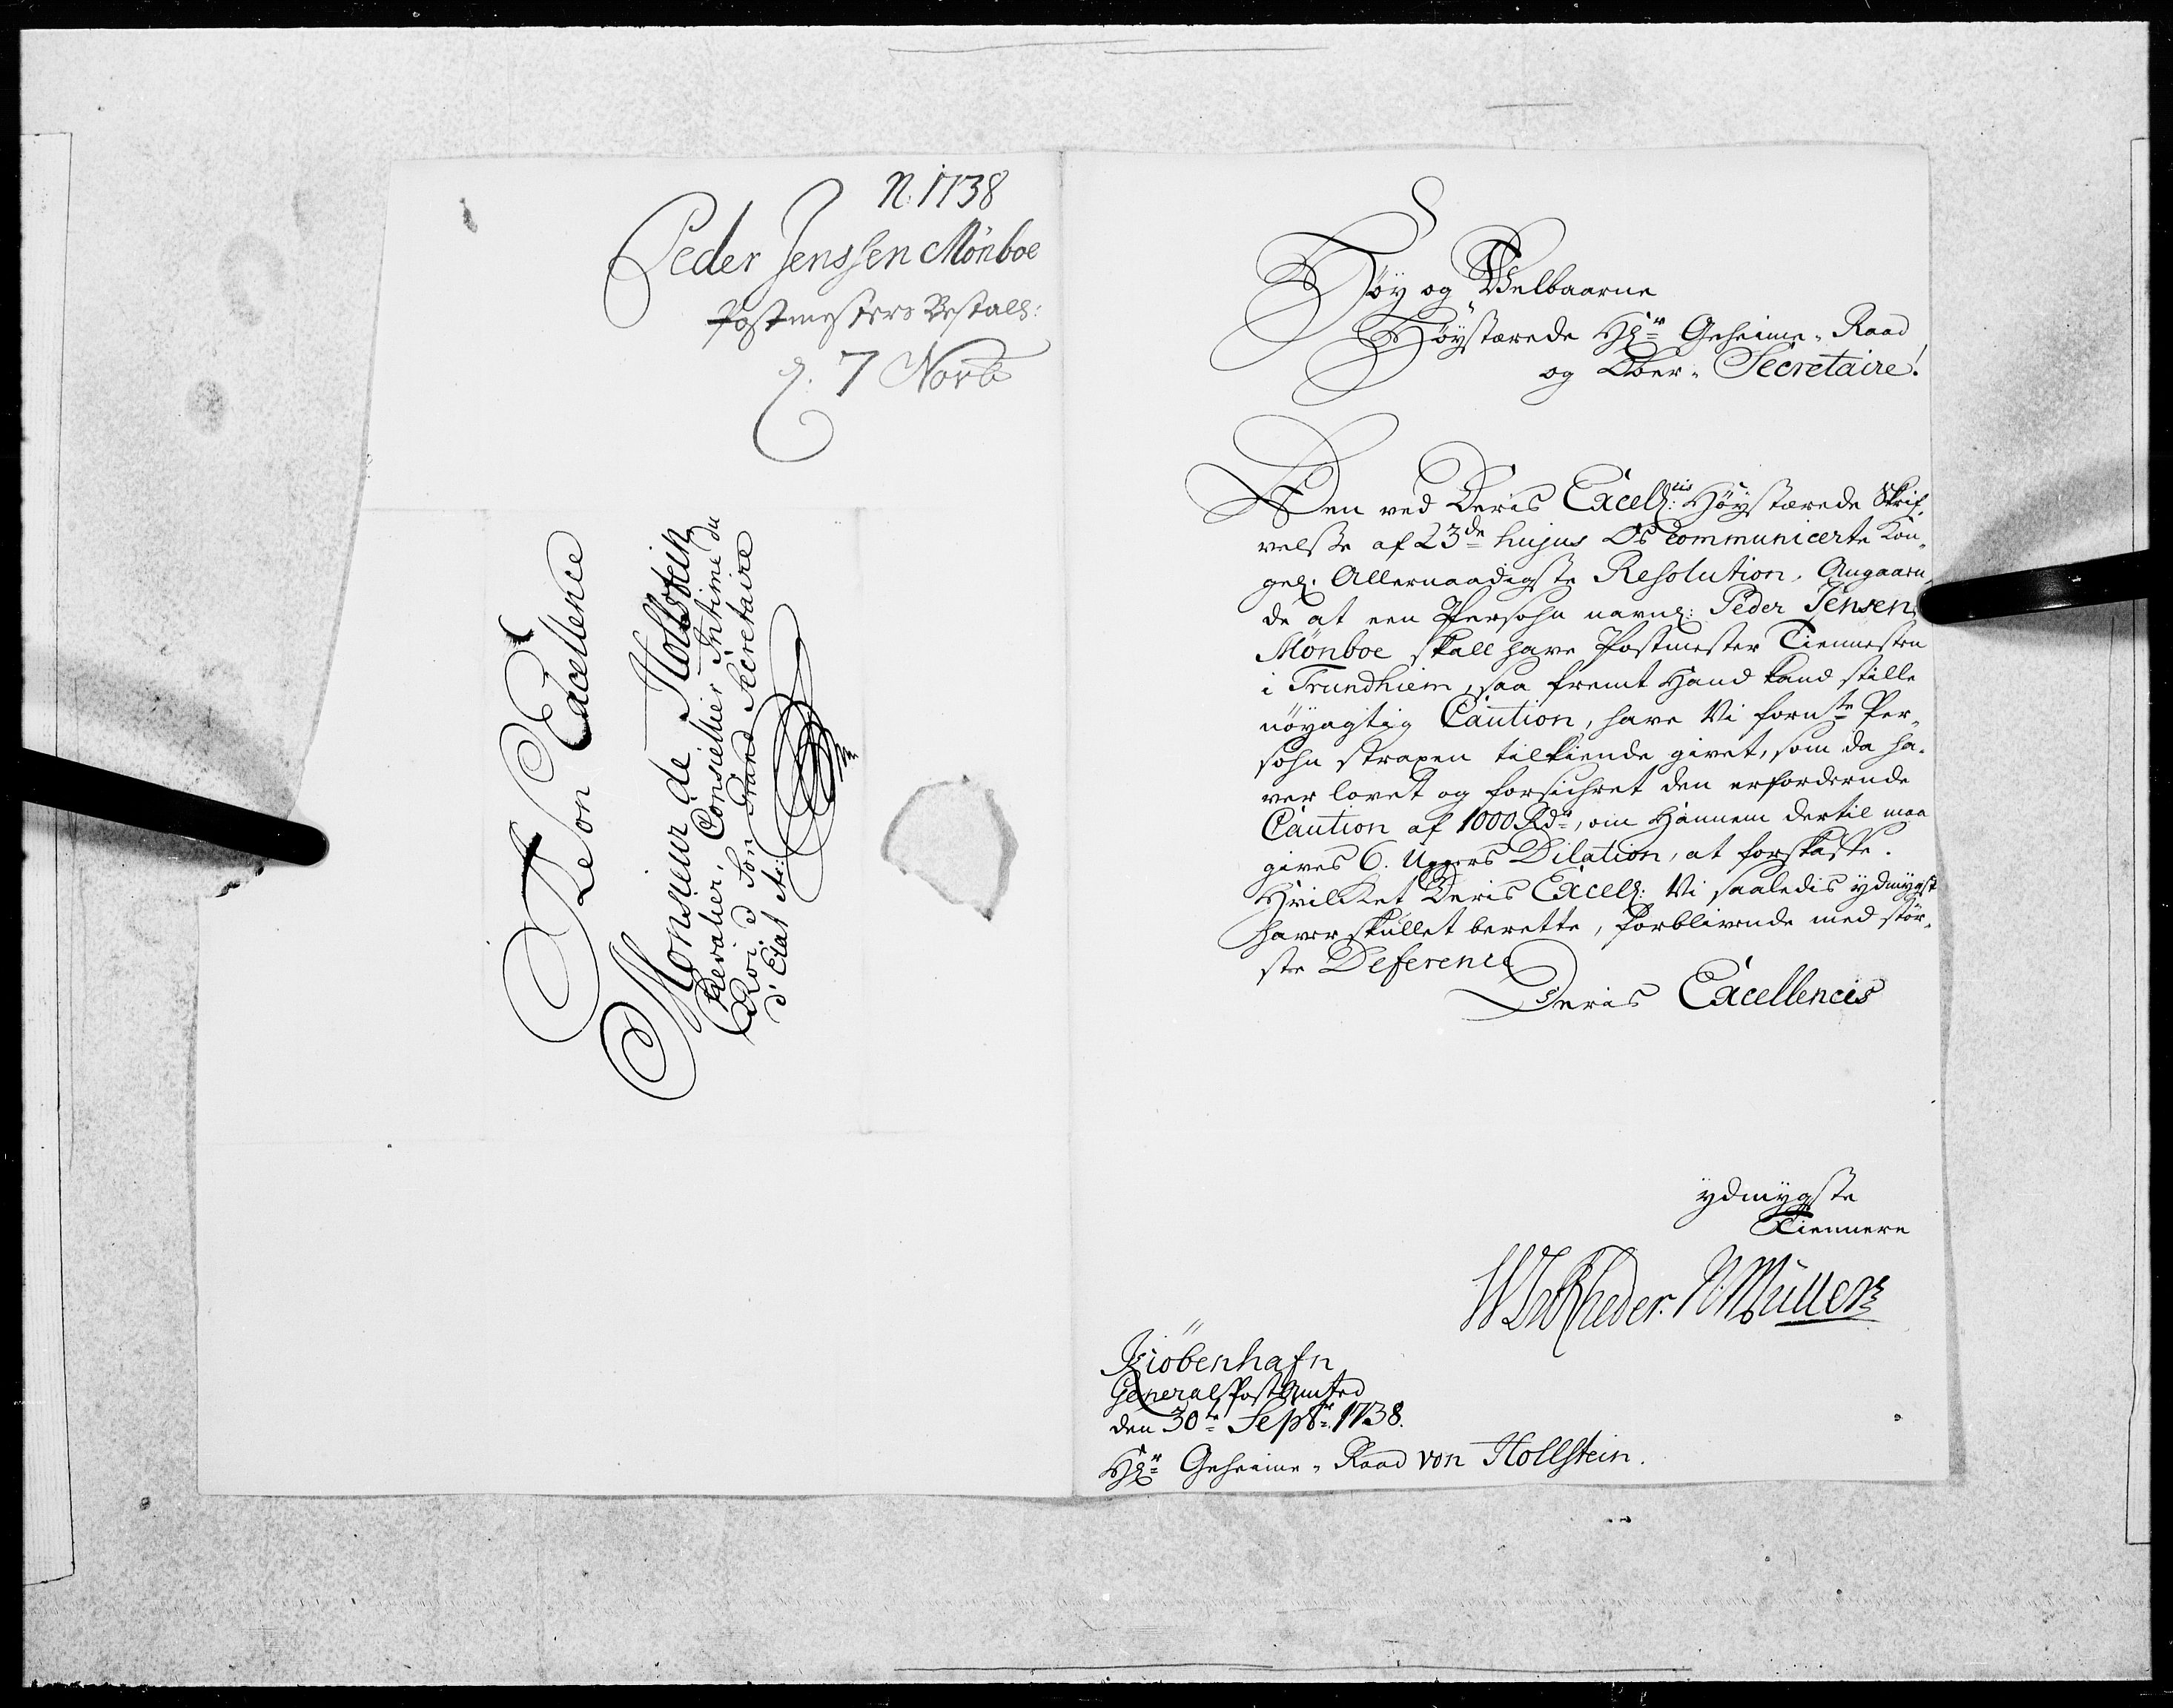 N. 1738
Peder Jenssen Mönboe
Postmesters Bestall:
d. 7 Novb
A Son Excellence
Monsieur de Hollstein
Chevalier, Consiellier Intime du
Roi, & Son Grand Secretaire
d'Etat &c:
Höy og Welbaarne
Höystærede Hr. Geheime-Raad
og Ober-Secretaire!
Den ved Deris Excell:cis Höystærede Skrif-
velsse af 23de hujus Os Communicerte Kon-
gel: Allernaadigste Resolution, Angaaen-
de at een Persohn navnl: Peder Jensen
Mönboe skall have Postmester Tiennesten
i Trundhiem, saa fremt Hand kand stille
nöyagtig Caution, have Vi fornte Per-
sohn straxen tilkiende givet, som da ha-
ver lovet og forsichret den erfordrende
Caution af 1000 Rdr, om Hannem dertil maa
gives 6. Ugers Dilation, at forskaffe.
Hvilket Deris Excell: Vi saaledis ydmygst
haver skullet berette, forblivende med stör-
ste Deference
Deris Excellencis
ydmygste
Tiennere
Müller
Kiöbenhafn
General Post Amted
den 30te Septbr: 1738.
Hr. Geheime-Raad von Hollstein.